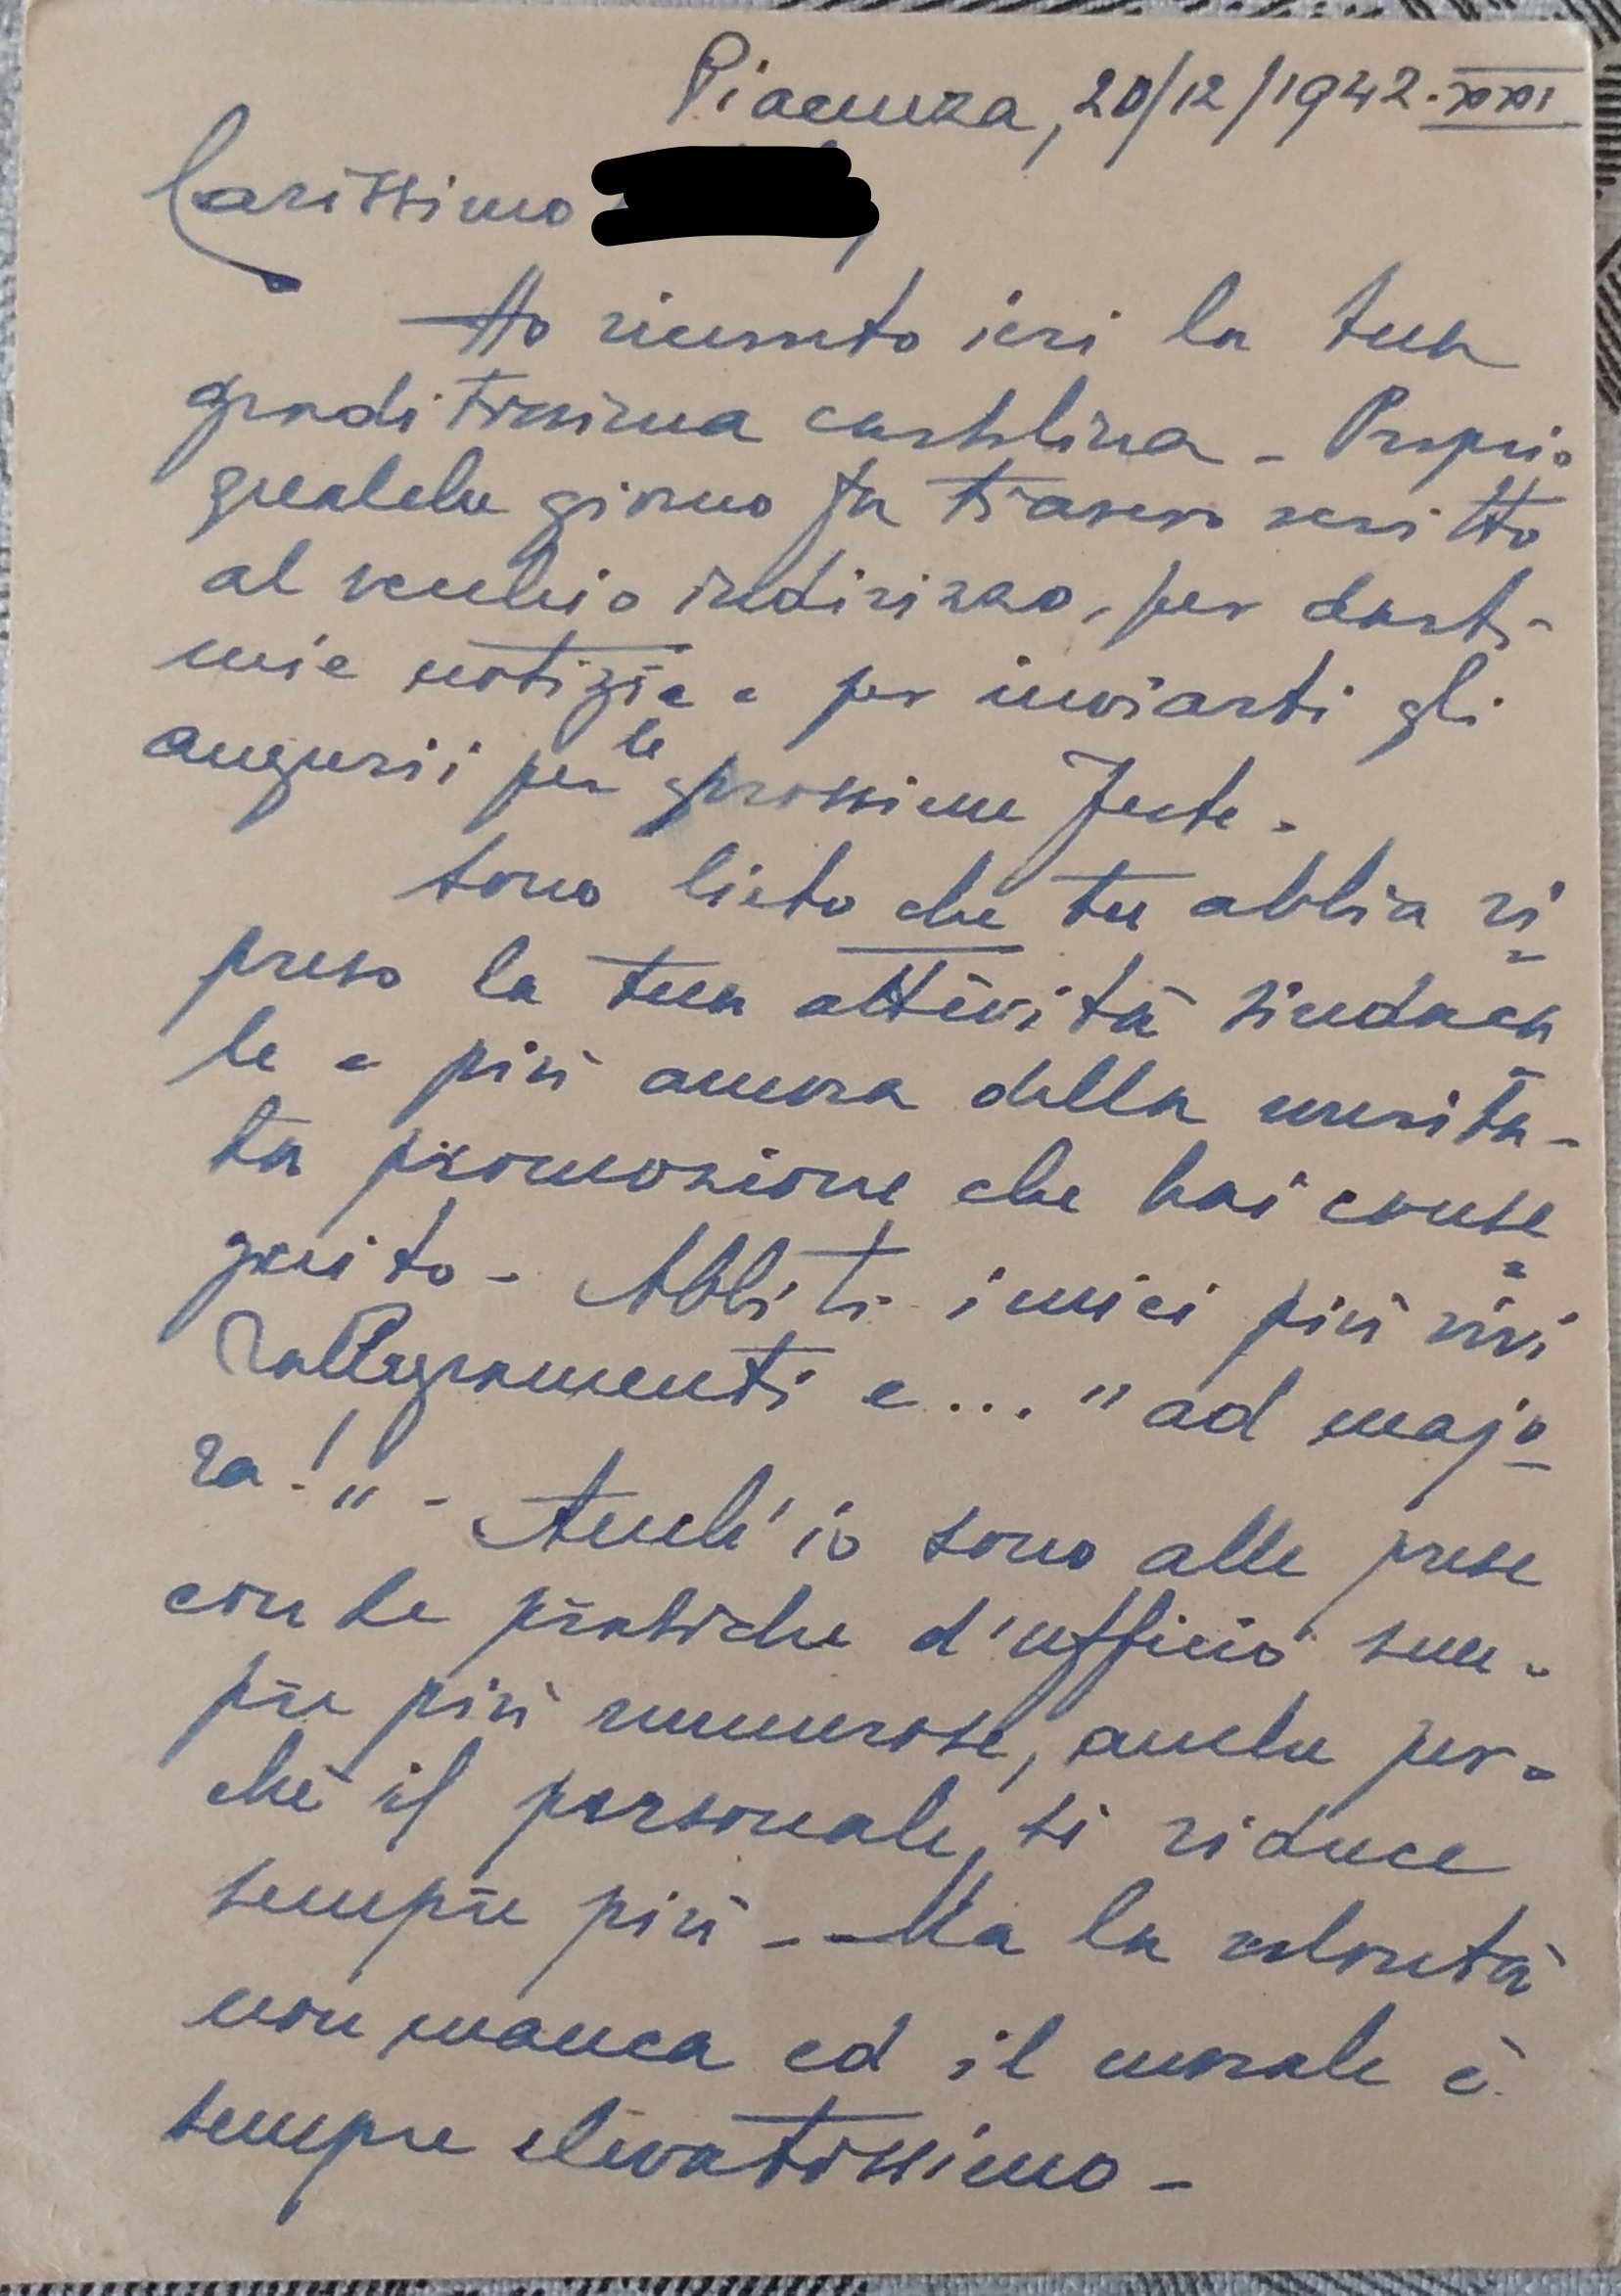 Piacenza, 20/12/1942-XXI
Carissimo
Ho ricevuto ieri la tua
graditissima cartolina - Proprio
qualche giorno fa ti avevo scritto
al vecchio indirizzo, per darti
mie notizie e per inviarti gli
augurii per le prossime feste -
Sono lieto che tu abbia ri=
preso la tua attività sindaca=
le e più ancora della merita-
ta promozione che hai conse=
guito - Abbiti i miei più vivi
rallegramenti e... "ad majo=
ra!" - Anch'io sono alle prese
con le pratiche d'ufficio sem-
pre più numerose, anche per-
chè il personale, si riduce
sempre più -- Ma la volontà
non manca ed il morale è
sempre elevatissimo -